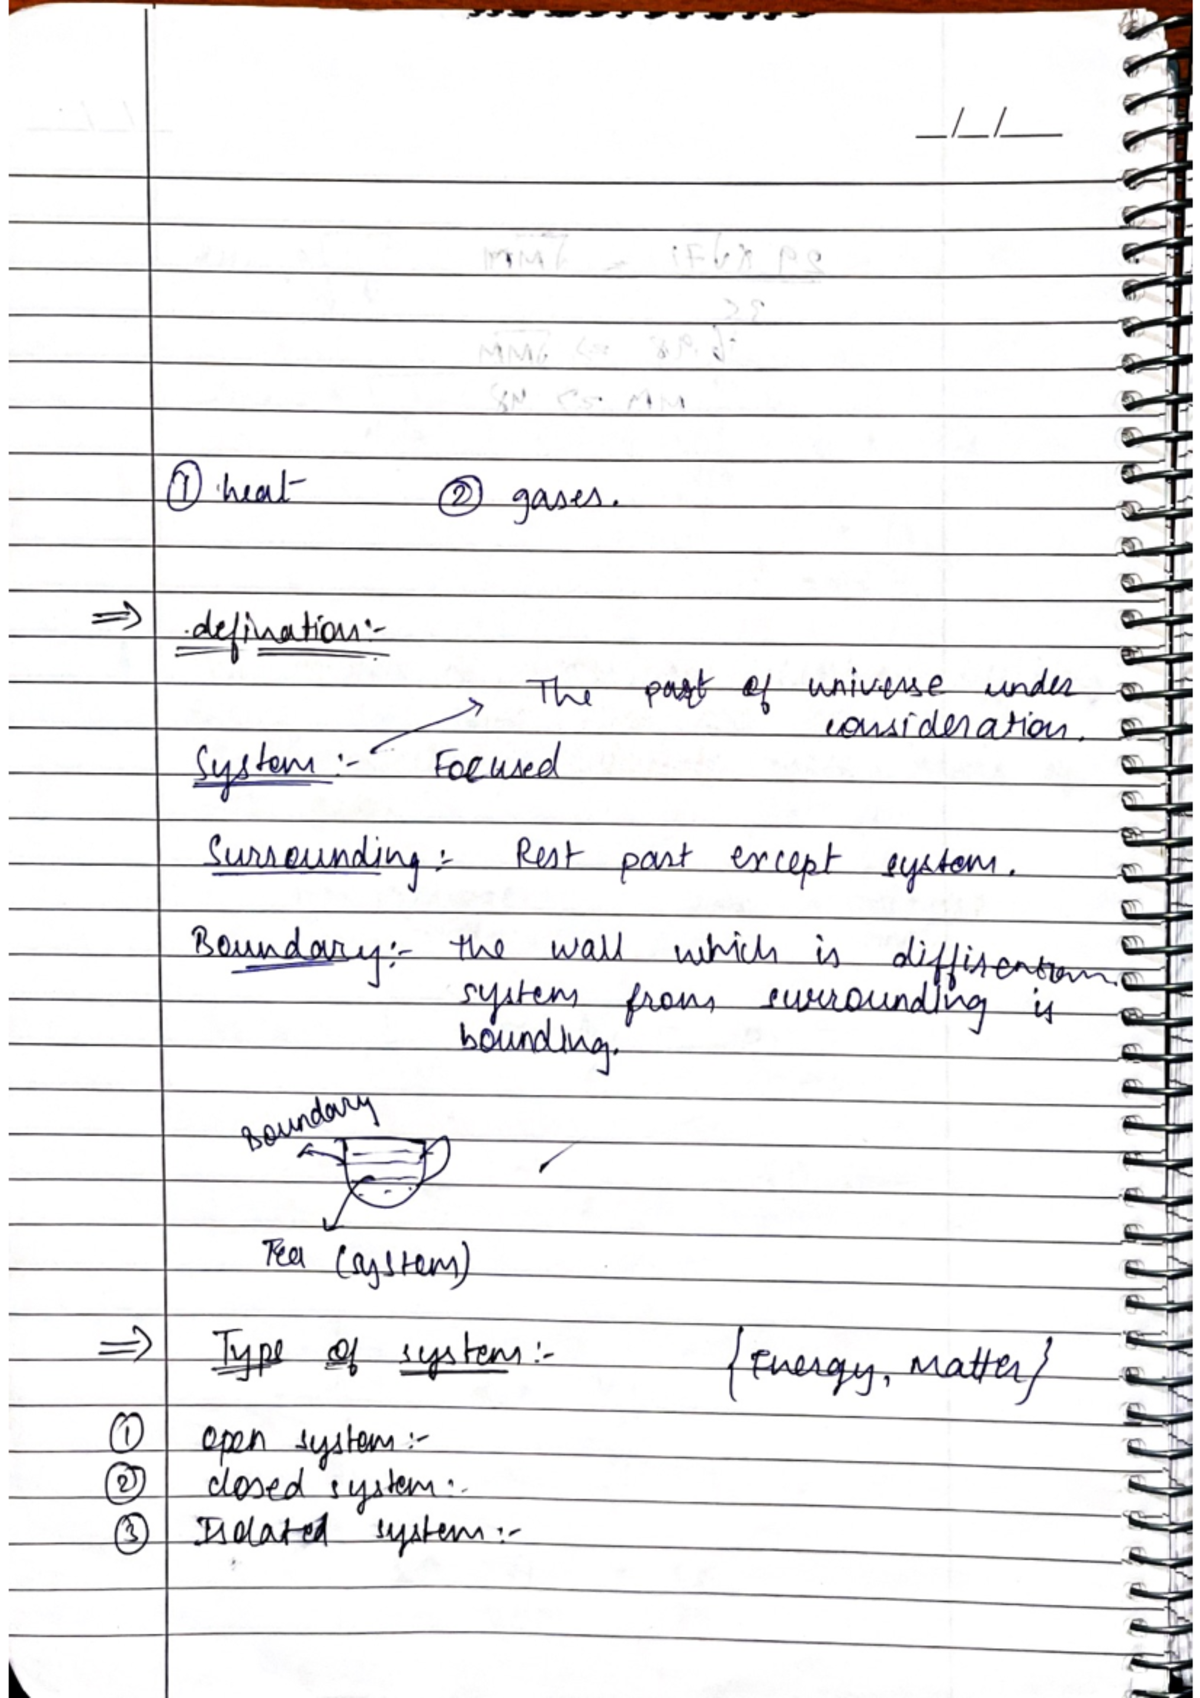 _/_/__
① heat ② gases.
⇒ defination:-
The part of universe under
consideration.
System:- Focused
Surrounding:- Rest part except system.
Boundary:- the wall which is
system from surrounding is
bounding.
Boundary
Tea (system)
⇒ Type of system:- {Energy, Matter}
① open system:-
② closed system:-
③ Isolated system:-